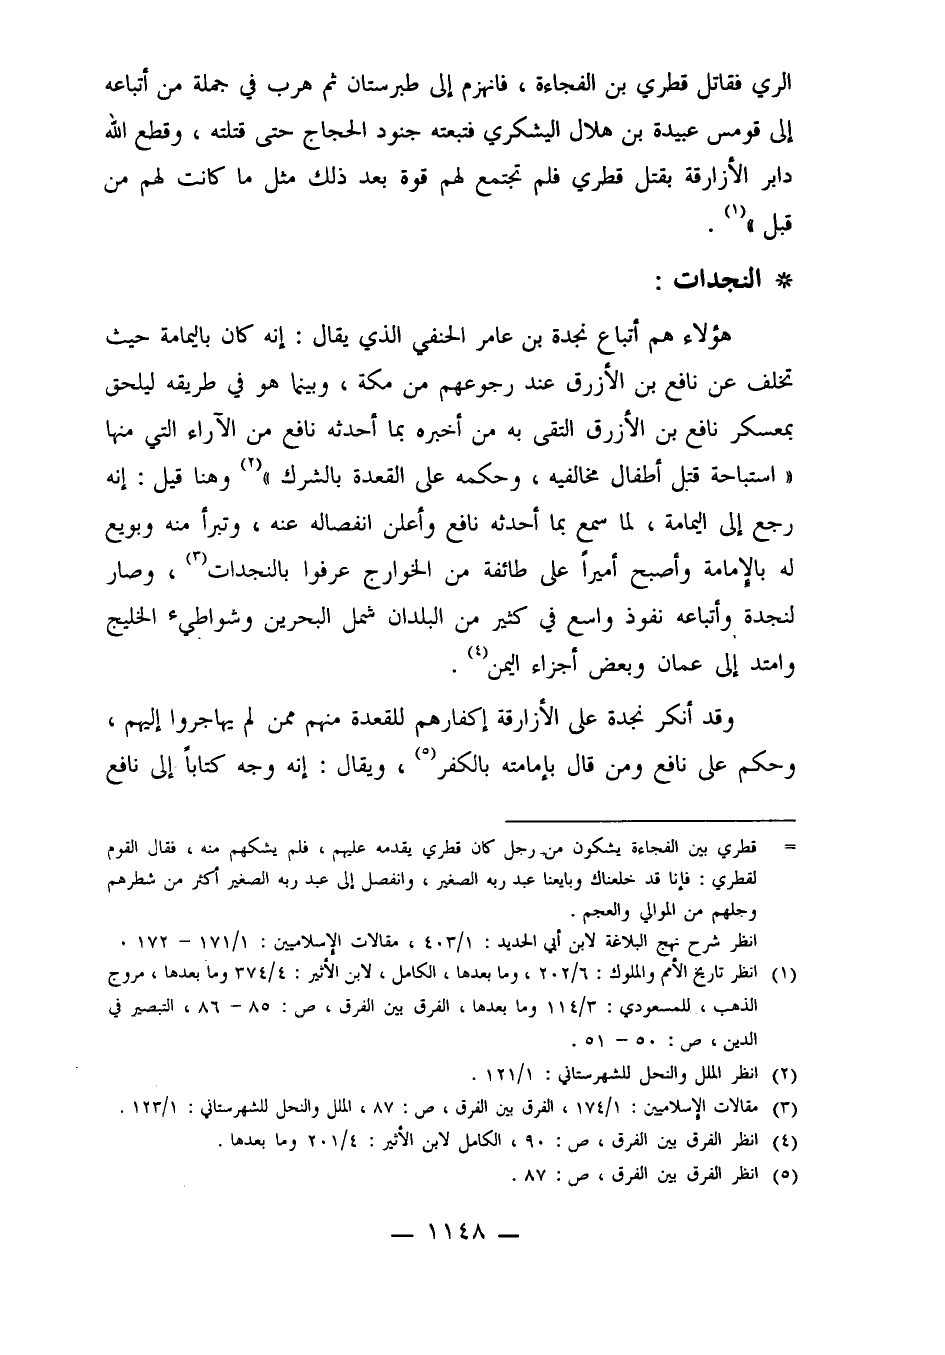 الري فقاتل قطري بن الفجاءة ، فانهزم إلى طبرستان ثم هرب في جملة من أتباعه
إلى قومس عبيدة بن هلال اليشكري فتبعته جنود الحجاج حتى قتلته ، وقطع الله
دابر الأزارقة بقتل قطري فلم تجتمع لهم قوة بعد ذلك مثل ما كانت لهم من
قبل »(١) .
* النجدات :
هؤلاء هم أتباع نجدة بن عامر الحنفي الذي يقال : إنه كان باليمامة حيث
تخلف عن نافع بن الأزرق عند رجوعهم من مكة ، وبينما هو في طريقه ليلحق
بمعسكر نافع بن الأزرق التقى به من أخبره بما أحدثه نافع من الآراء التي منها
« استباحة قتل أطفال مخالفيه ، وحكمه على القعدة بالشرك »(٢) وهنا قيل : إنه
رجع إلى اليمامة ، لما سمع بما أحدثه نافع وأعلن انفصاله عنه ، وتبرأ منه وبويع
له بالإمامة وأصبح أميراً على طائفة من الخوارج عرفوا بالنجدات(٣) ، وصار
لنجدة وأتباعه نفوذ واسع في كثير من البلدان شمل البحرين وشواطيء الخليج
وامتد إلى عمان وبعض أجزاء اليمن(٤) .
وقد أنكر نجدة على الأزارقة إكفارهم للقعدة منهم ممن لم يهاجروا إليهم ،
وحكم على نافع ومن قال بإمامته بالكفر(٥) ، ويقال : إنه وجه كتاباً إلى نافع
= قطري بين الفجاءة يشكون من رجل كان قطري يقدمه عليهم ، فلم يشكهم منه ، فقال القوم
لقطري : فإنا قد خلعناك وبايعنا عبد ربه الصغير ، وانفصل إلى عبد ربه الصغير أكثر من شطرهم
وجلهم من الموالي والعجم .
انظر شرح نهج البلاغة لابن أبي الحديد : ٤٠٣/١ ، مقالات الإسلاميين : ١٧١/١ – ١٧٢ .
(١) انظر تاريخ الأمم والملوك : ٢٠٢/٦ ، وما بعدها ، الكامل ، لابن الأثير : ٣٧٤/٤ وما بعدها ، مروج
الذهب ، للمسعودي : ١١٤/٣ وما بعدها ، الفرق بين الفرق ، ص : ٨٥ – ٨٦ ، التبصير في
الدين ، ص : ٥٠ – ٥١ .
(٢) انظر الملل والنحل للشهرستاني : ١٢١/١ .
(٣) مقالات الإسلاميين : ١٧٤/١ ، الفرق بين الفرق ، ص : ٨٧ ، الملل والنحل للشهرستاني : ١٢٣/١ .
(٤) انظر الفرق بين الفرق ، ص : ٩٠ ، الكامل لابن الأثير : ٢٠١/٤ وما بعدها .
(٥) انظر الفرق بين الفرق ، ص : ٨٧ .
— ١١٤٨ —